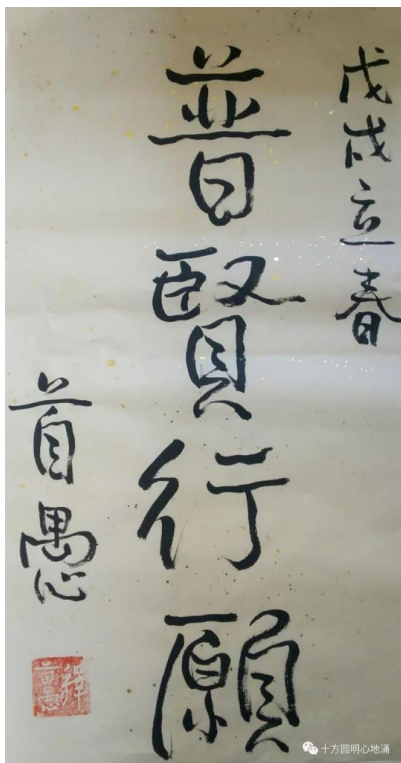 戊戌立春
普賢行願
首愚
釋首愚
十方圆明心地涌